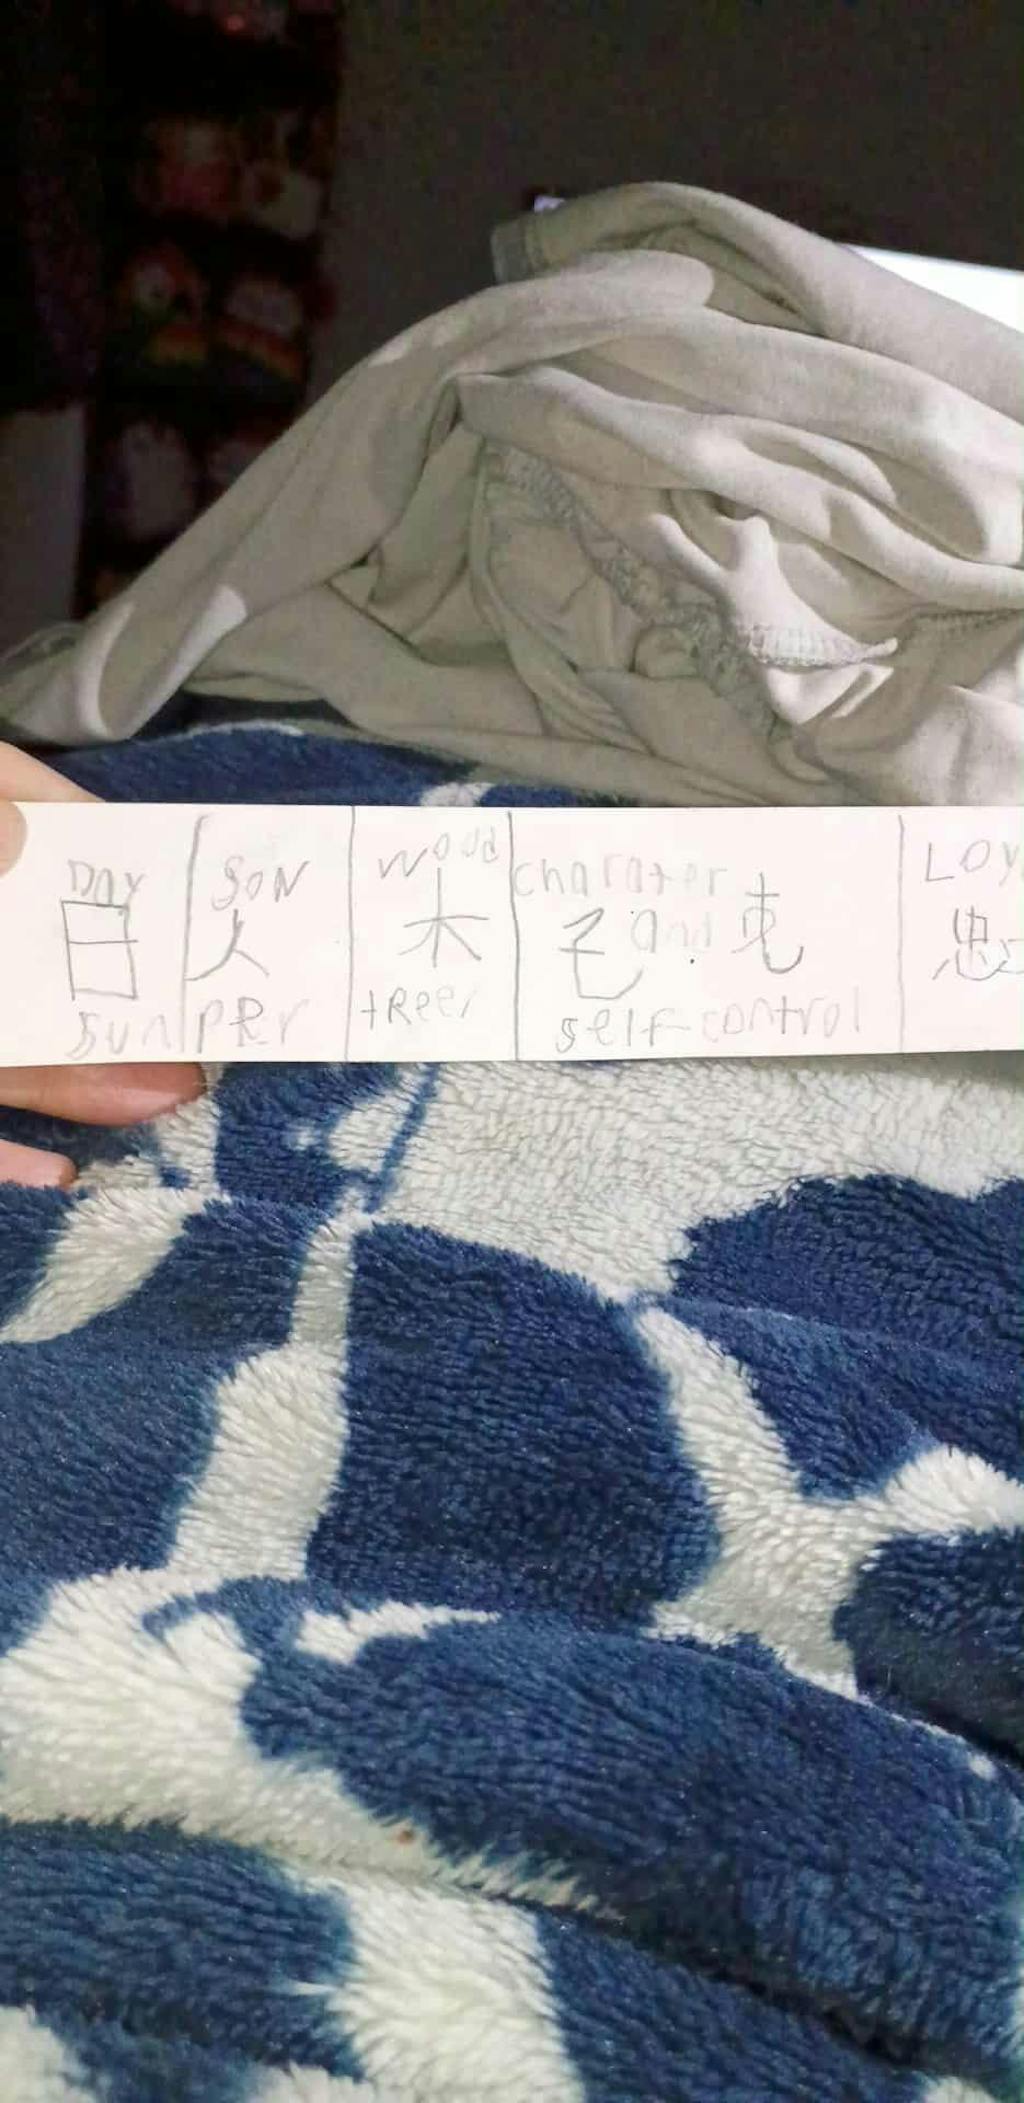 Day
日
sun
SON
人
PER
wood
木
treer
charater
己 and 克
self-control
Loy
忠